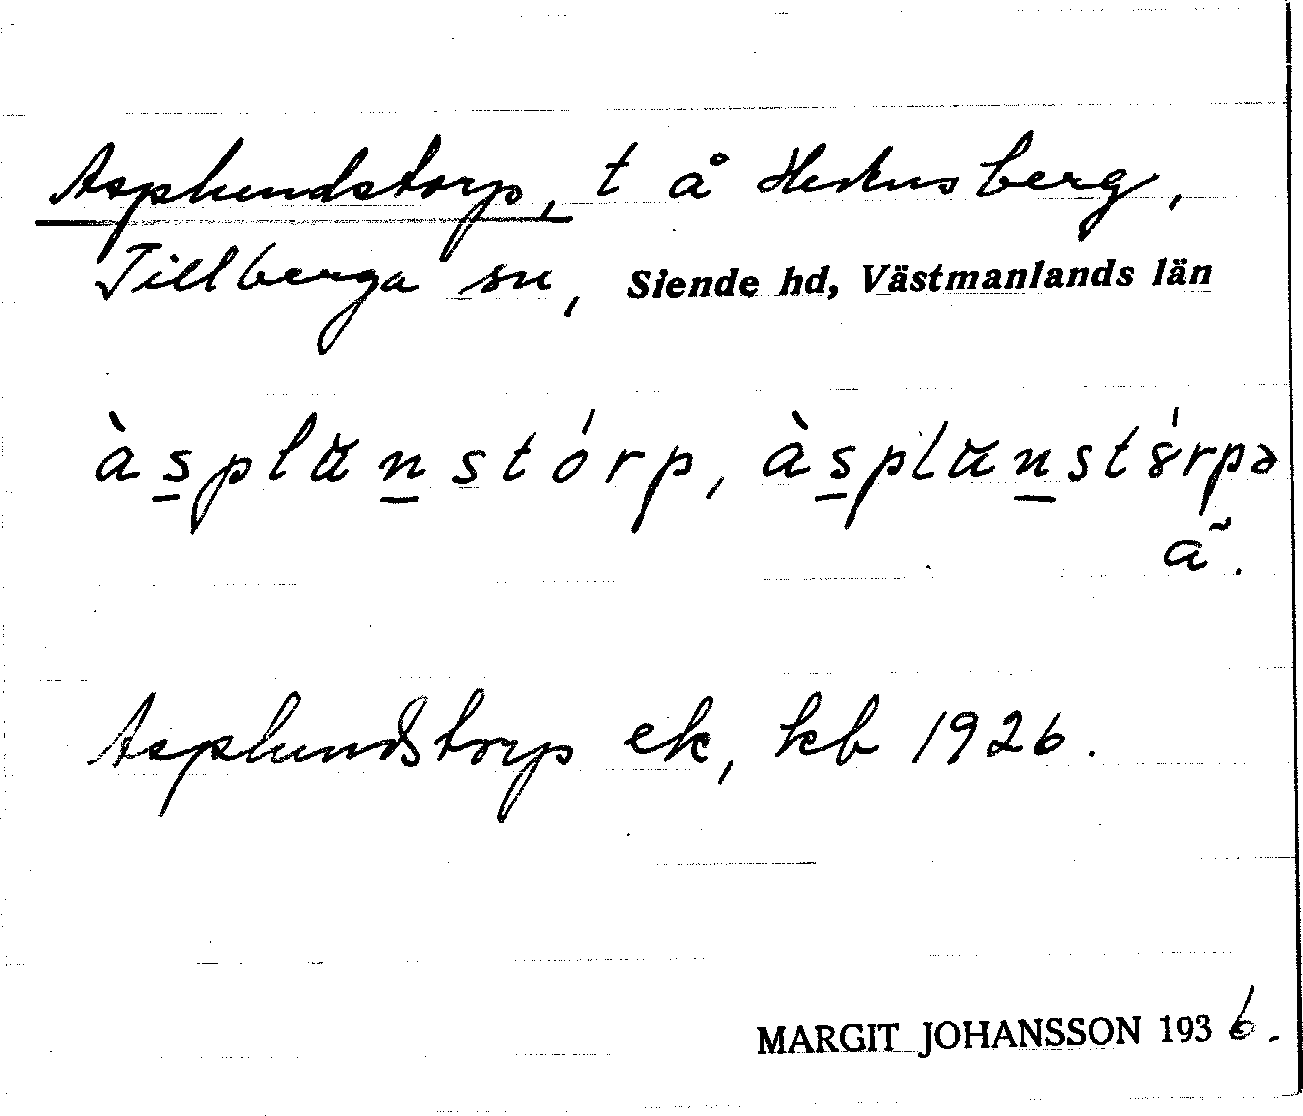 Asplundstorp, t å Herknsberg,
Tillberga sn, Siende hd, Västmanlands län
àsplunstórp, àsplunstórpə
ã.
Asplundstorp ek, kb 1926.
MARGIT JOHANSSON 1936.